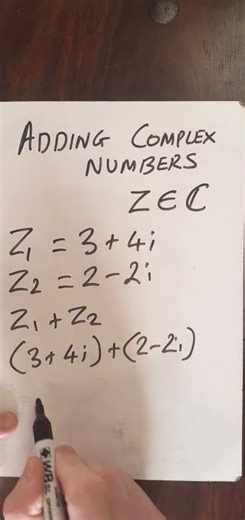 ADDING COMPLEX
NUMBERS
Z ∈ ℂ
Z₁ = 3 + 4i
Z₂ = 2 - 2i
Z₁ + Z₂
(3 + 4i) + (2 - 2i)
WB